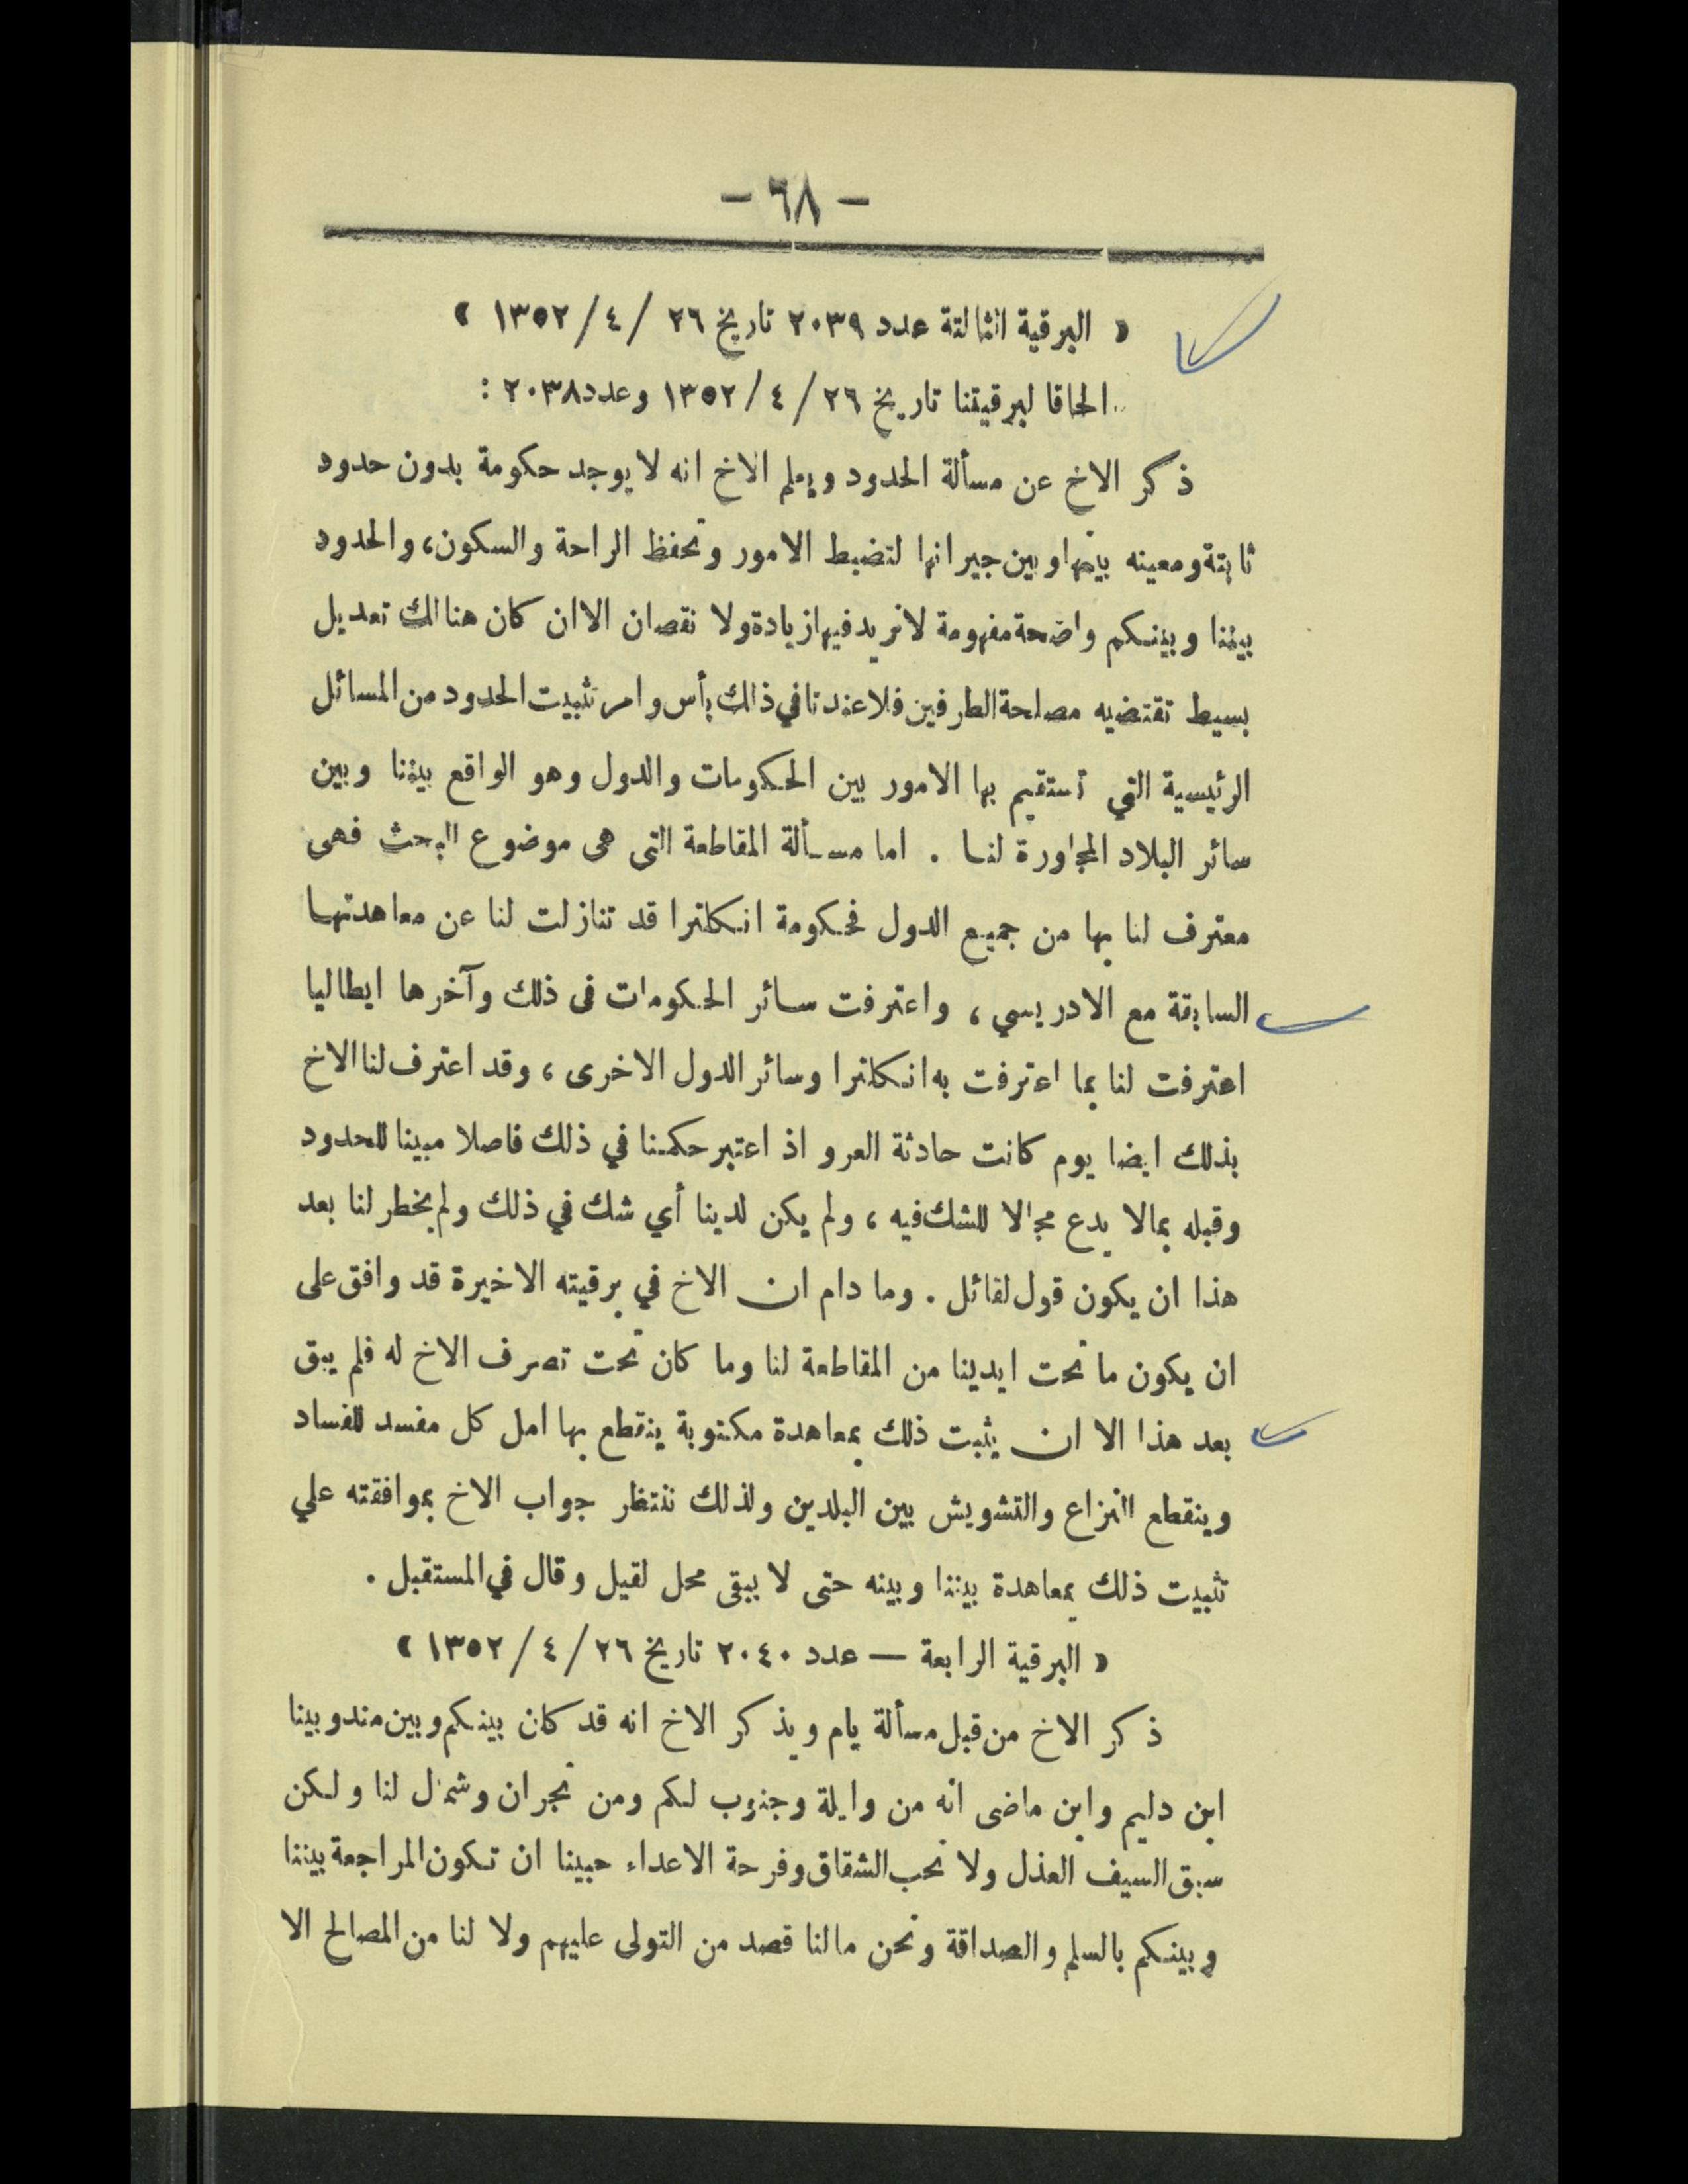 - ٦٨ -
« البرقية الثالثة عدد ٢٠٣٩ تاريخ ٢٦ /٤/ ١٣٥٢ »
الحاقا لبرقيتنا تاريخ ٢٦ /٤/ ١٣٥٢ وعدد ٢٠٣٨ :
ذكر الاخ عن مسألة الحدود ويعلم الاخ انه لا يوجد حكومة بدون حدود
ثابتة ومعينه بينها وبين جيرانها لتضبط الامور وتحفظ الراحة والسكون، والحدود
بيننا وبينكم واضحة مفهومة لانريد فيها زيادة ولا نقصان الا ان كان هنالك تعديل
بسيط تقتضيه مصلحة الطرفين فلا عندنا في ذلك بأس وامر تثبيت الحدود من المسائل
الرئيسية التي تستقيم بها الامور بين الحكومات والدول وهو الواقع بيننا وبين
سائر البلاد المجاورة لنا . اما مسألة المقاطعة التى هى موضوع البحث فهى
معترف لنا بها من جميع الدول فحكومة انكلترا قد تنازلت لنا عن معاهدتها
السابقة مع الادريسي ، واعترفت سائر الحكومات فى ذلك وآخرها ايطاليا
اعترفت لنا بما اعترفت به انكلترا وسائر الدول الاخرى ، وقد اعترف لنا الاخ
بذلك ايضا يوم كانت حادثة العرو اذ اعتبر حكمنا في ذلك فاصلا مبينا للحدود
وقبله بمالا يدع مجالا للشك فيه ، ولم يكن لدينا أي شك في ذلك ولم يخطر لنا بعد
هذا ان يكون قول لقائل . وما دام ان الاخ في برقيته الاخيرة قد وافق على
ان يكون ما تحت ايدينا من المقاطعة لنا وما كان تحت تصرف الاخ له فلم يبق
بعد هذا الا ان يثبت ذلك بمعاهدة مكتوبة ينقطع بها امل كل مفسد للفساد
وينقطع النزاع والتشويش بين البلدين ولذلك ننتظر جواب الاخ بموافقته علي
تثبيت ذلك بمعاهدة بيننا وبينه حتى لا يبقى محل لقيل وقال في المستقبل .
« البرقية الرابعة — عدد ٢٠٤٠ تاريخ ٢٦ /٤/ ١٣٥٢ »
ذكر الاخ من قبل مسألة يام ويذكر الاخ انه قد كان بينكم وبين مندوبينا
ابن دليم وابن ماضى انه من وايلة وجنوب لكم ومن نجران وشمال لنا ولكن
سبق السيف العذل ولا نحب الشقاق وفرحة الاعداء حبينا ان تكون المراجعة بيننا
وبينكم بالسلم والصداقة ونحن مالنا قصد من التولى عليهم ولا لنا من المصالح الا